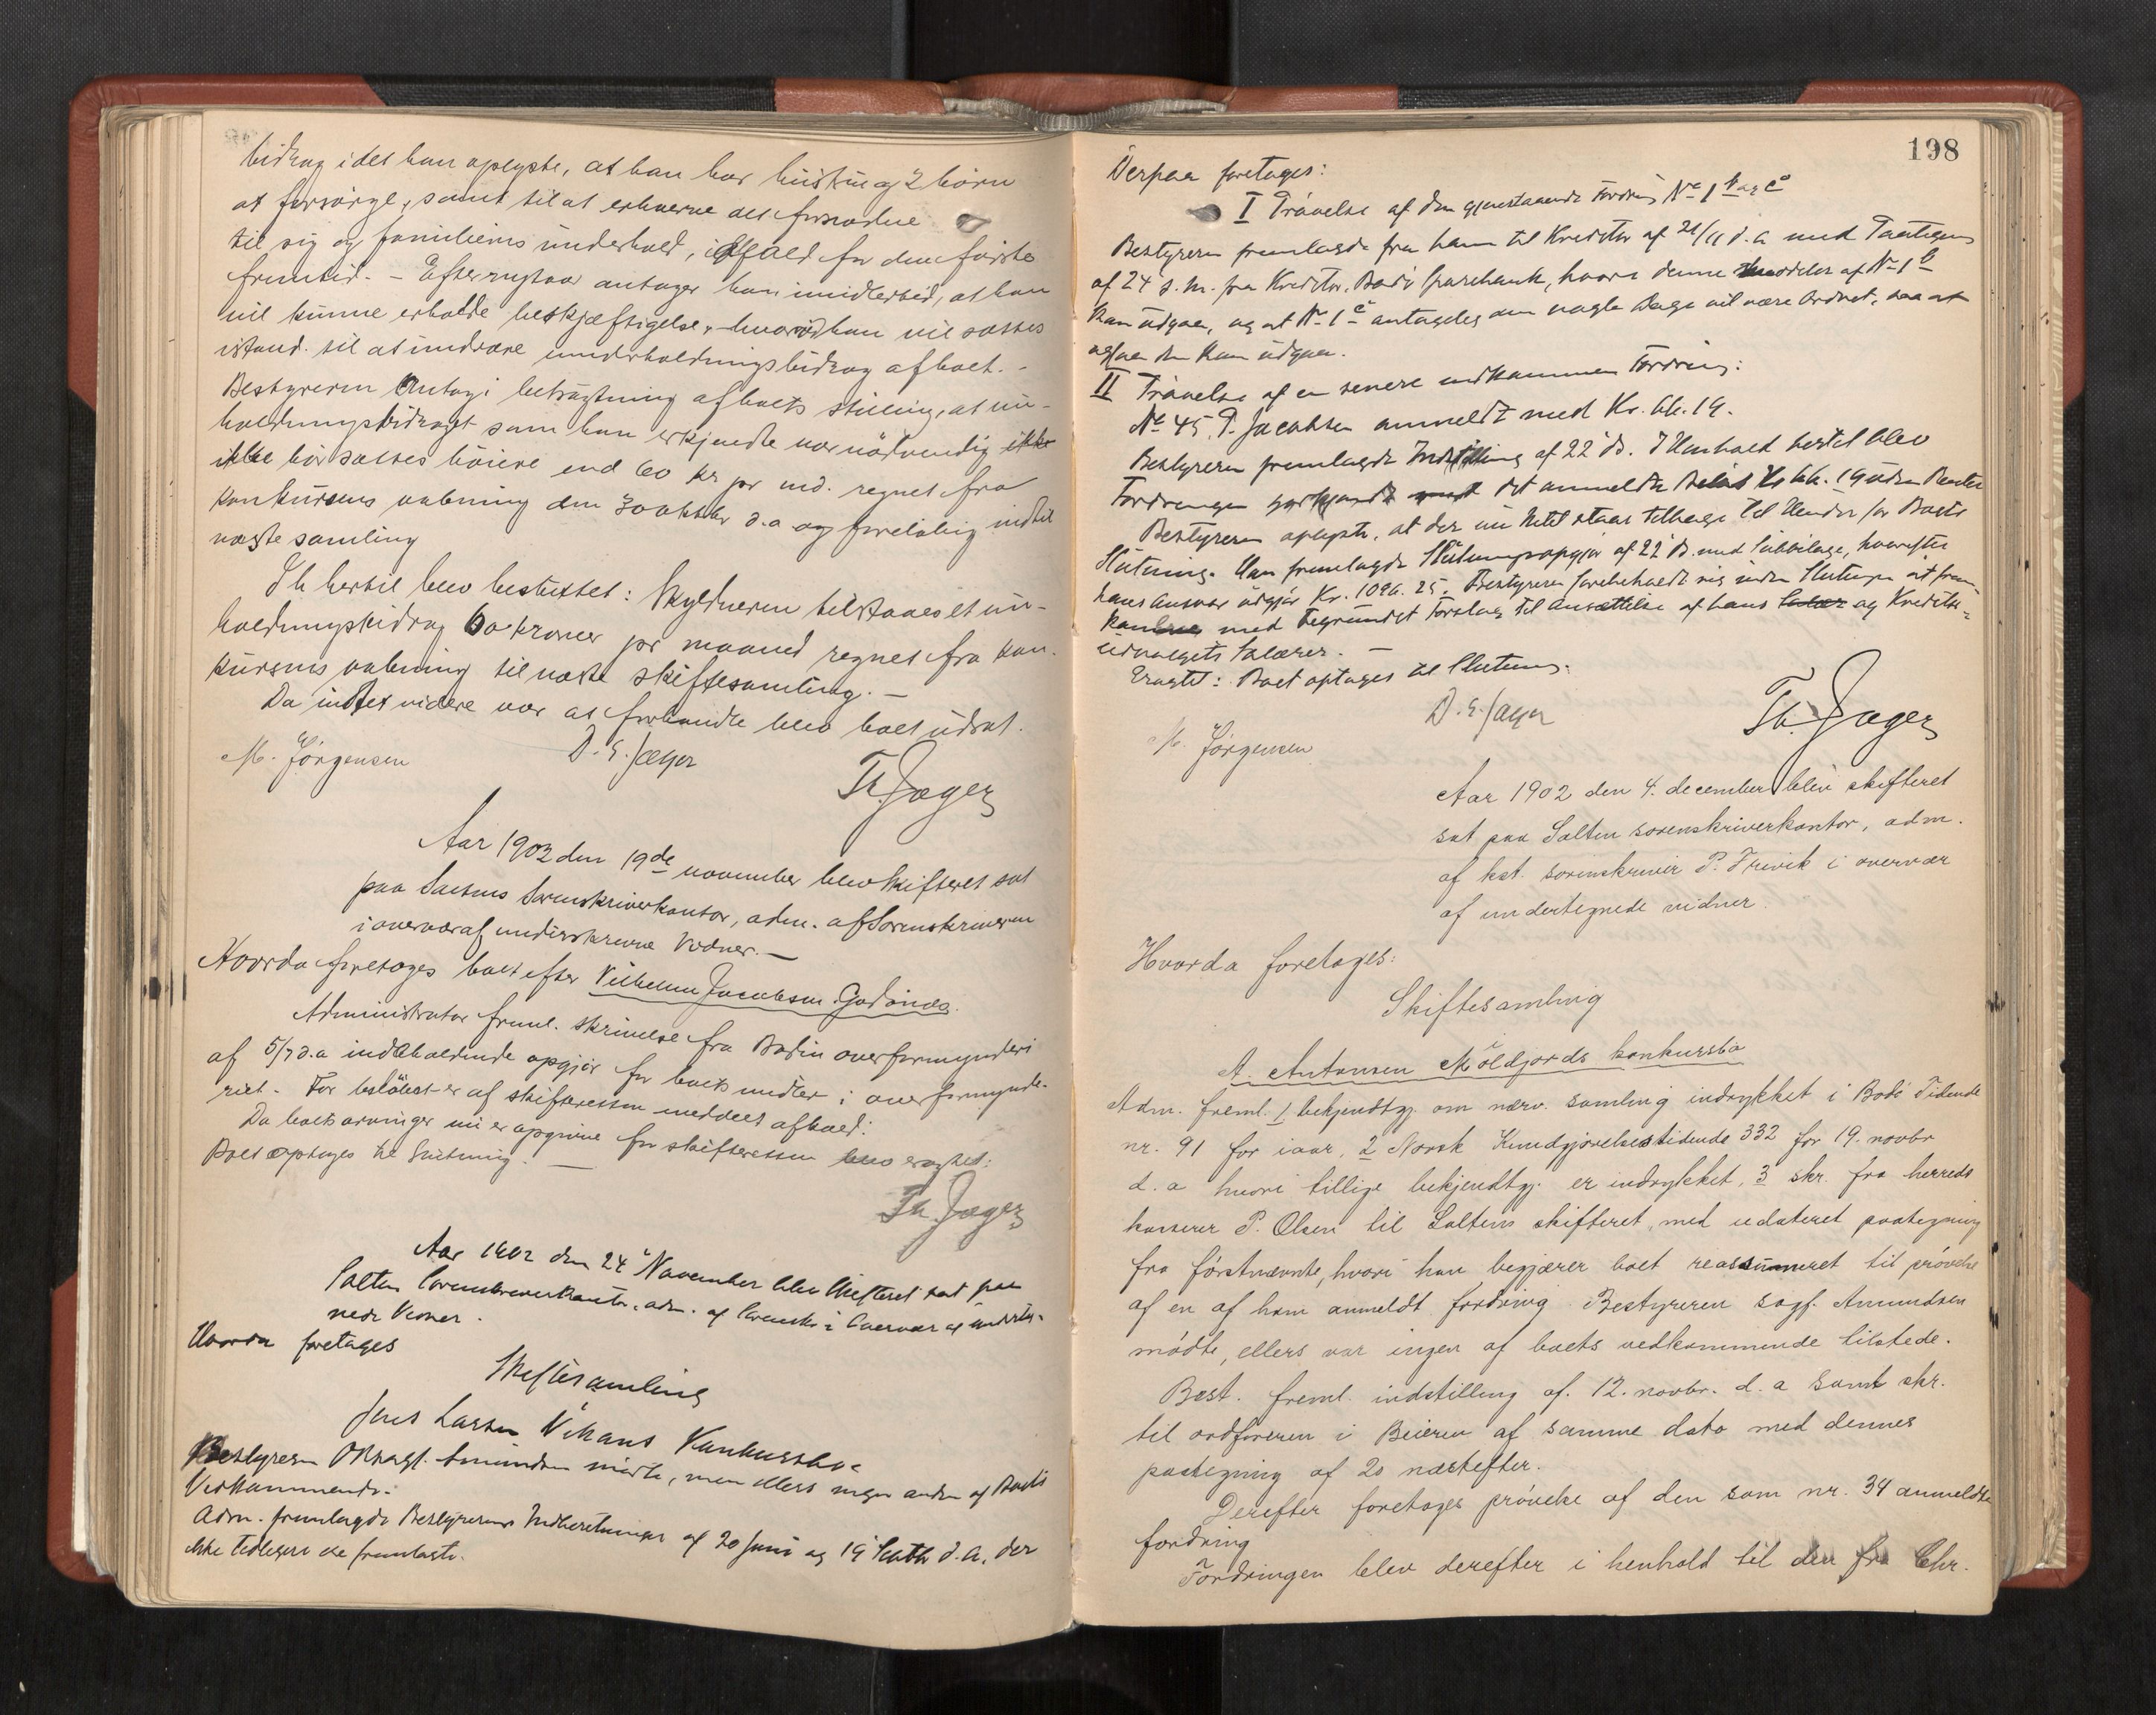 bidrag idet han oplyste, at han har hustru og 2 børn
at forsørge, samt til at erhverve det fornødne
til sig og familiens underhold, ialfald for den første
fremtid. – Efter nytaar antager han imidlertid, at han
vil kunne erholde beskjæftigelse, hvorved han vil sættes
istand til at undvære underholdningsbidrag af boet. –
Bestyreren antog i betragtning af boets stilling, at un-
holdningsbidraget som han erkjendte var nødvendig ikke
ikke bør sættes høiere end 60 kr pr md. regnet fra
konkursens aabning den 30 oktbr d.a og foreløbig indtil
næste samling
I h hertil blev besluttet: Skyldneren tilstaaes et un-
holdningsbidrag 60 kroner pr maaned regnet fra kon-
kursens aabning til næste skiftesamling. –
Da intet videre var at forhandle blev boet udsat.
M. Jørgensen D. E. Jæger
Th. Jæger
Aar 1902 den 19de november blev skifteret sat
paa Saltens Sorenskriverkontor, adm. af Sorenskriveren
i overvær af underskrevne Vidner. –
Hvorda foretages boet efter Vilhelm Jacobsen Godønes.
Administrator freml. skrivelse fra Bodin overformynderi
af 5/7 d.a indeholdende opgjør for boets midler i overformynde-
riet. – For beløbet er af skifteretten meddelt afkald:
Da boets arvinger nu er opgivne for skifteretten blev eragtet:
Boet optages til Slutning. –
Th. Jæger
Aar 1902 den 24 November blev Skifteret sat paa
Salten Sorenskriverkontor, adm. af Sorenskr i Overvær af underteg-
nede Vidner.
Hvorda foretages
Skiftesamling
Jens Larsen Vikans Konkursbo.
Bestyreren ORsagf. Amundsen mødte, men ellers ingen anden af Boets
Vedkommende.
Adm. fremlagde Bestyrerens Indberetninger af 20 Juni og 19 Septb d.A. der
ikke tidligere ere fremlagte.
198
Derpaa foretages:
I Prøvelse af den gjenstaaende Fordring No 1 b og c
Bestyreren fremlagde fra ham til Kreditor af 21/11 d.a med Paategn
af 24 d.m. fra Kreditor, Bodø Sparebank, hvori denne meddeler af No 1 b
kan udgaa, og at No 1 c antagelig om nogle Dage vil være ordnet, saa at
ogsaa den kan udgaa.
II Prøvelse af en senere indkommen Fordring:
No 45, P. Jacobsen anmeldt med Kr. 66.19.
Bestyreren fremlagde Indstilling af 22 ds. I Henhold hertil blev
Fordringen godkjendt med det anmeldte Beløb Kr 66.19 uden Renter
Bestyreren oplyste, at der nu Intet staar tilbage til Hinder for Boets
Slutning. Han fremlagde Slutningsopgjør af 22 ds. med Subbilage, hvorefter
hans Ansvar udgjør Kr. 1096.25. Bestyreren forebeholdt sig inden Slutningen at frem-
komme med begrundet Forslag til Ansættelse af hans Salær og Kreditor-
udvalgets Salærer. –
Eragtet: Boet optages til Slutning.
M. Jørgensen D. E. Jæger Th. Jæger
Aar 1902 den 4. december blev skifteret
sat paa Salten sorenskriverkontor, adm.
af kst. sorenskriver P. Trivik i overvær
af undertegnede vidner.
Hvorda foretages:
Skiftesamling
A. Antonsen Moldjords konkursbo
Adm. freml. 1 bekjendtgj. om nærv. samling indrykket i Bodø Tidende
nr. 91 for iaar, 2 Norsk Kundgjørelsestidende 332 for 19. novbr
d. a hvori tillige bekjendtgj. er indrykket, 3 skr. fra herreds
kasserer P. Olsen til Saltens skifteret med udateret paategning
fra førstnævnte, hvori han begjærer boet reassumeret til prøvelse
af en af ham anmeldt fordring. Bestyreren sagf. Amundsen
mødte, ellers var ingen af boets vedkommende tilstede.
Best. freml. indstilling af. 12. novbr. d. a samt skr.
til ordføreren i Beieren af samme dato med dennes
paategning af 20 næstefter.
Derefter foretoges prøvelse af den som nr. 34 anmeldte
fordring
Fordringen blev derefter i henhold til den fra Chr.